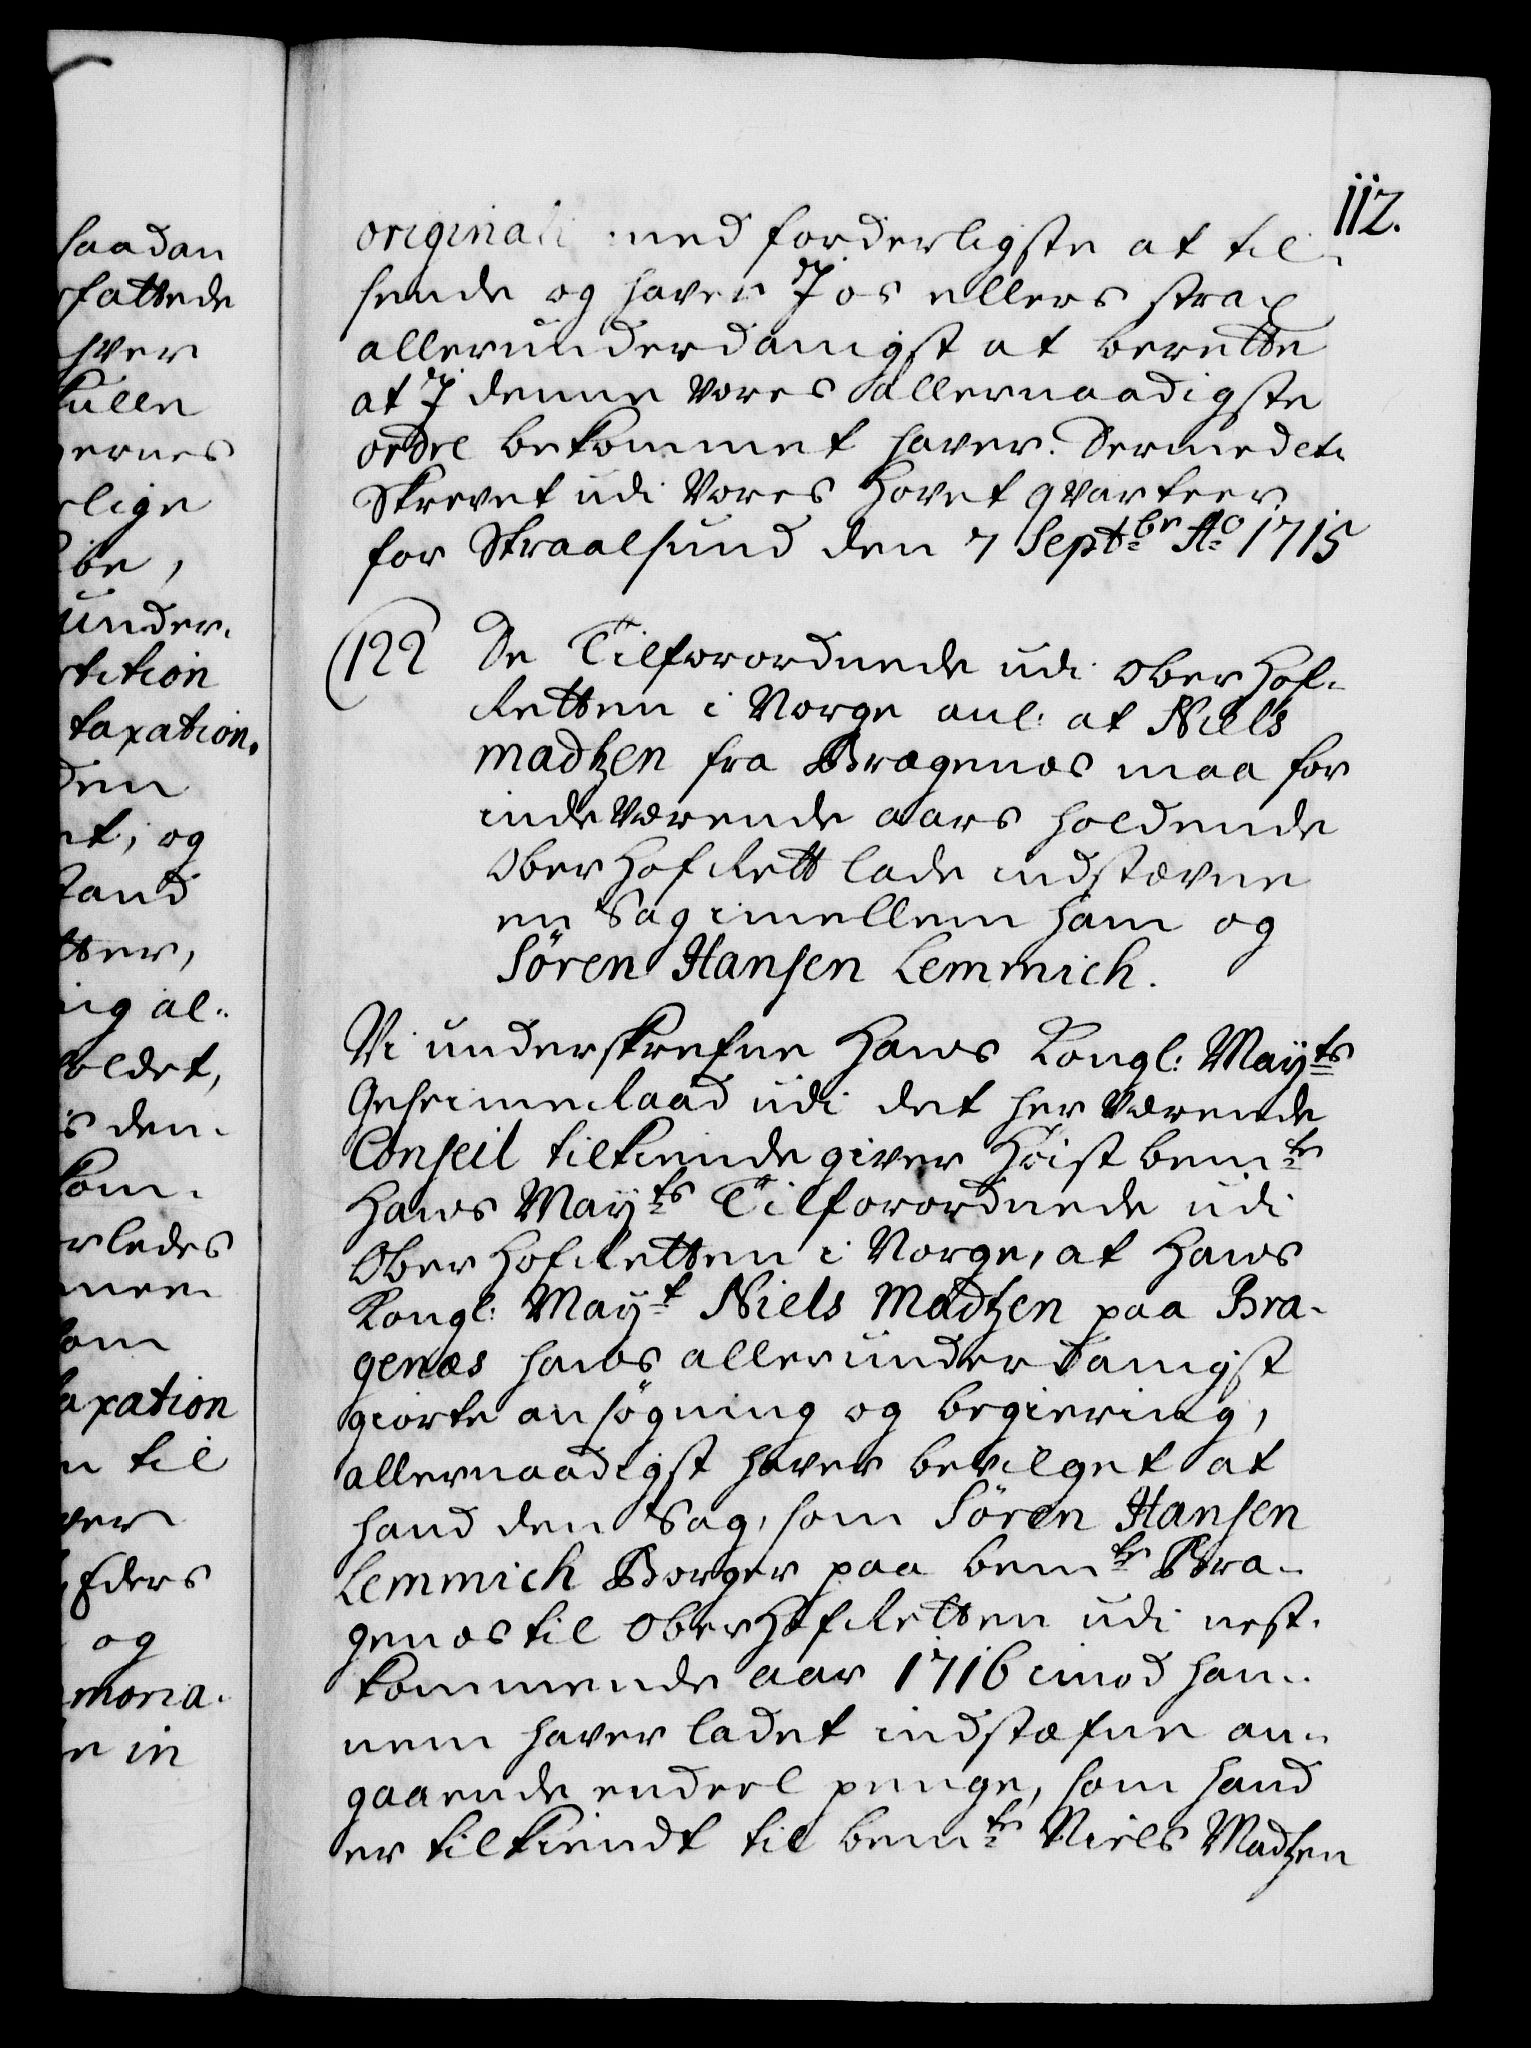 112.
saadan
fattede
hver
kulle
ernes
lige
be,
under-
tition
taxation.
den
et; og
tand
tter,
ing al-
oldet,
s den-
kom-
rledes
meen
som
axation
n til
ver
Eders
og
moria-
e in
originali med forderligste at til-
sende og haver J os ellers strax
allerunderdanigst at berette
at J denne Vores allernaadigste
ordre bekommet haver. Dermed etc
Skrevet udi Vores Hovet qvarteer
for Straalsund den 7 Septbr Ao 1715
(122 De Tilforordnede udi Ober Hof-
Retten i Norge anl: at Niels
Madtzen fra Bragenæs maa for
indeværende aars holdende
Ober Hof Rett lade indstævne
en Sag imellem ham og
Sören Hansen Lemmich.
Vi underskrefne Hans Kongl: Mayts
Geheimeraad udi det her værende
Conseil tilkiende giver Høist bemte
Hans Mayts Tilforordnede udi
Ober Hof Retten i Norge, at Hans
Kongl: Mayt Niels Madtzen paa Bra-
genæs hans allerunderdanigst
giorte ansögning og begiering,
allernaadigst haver bevilget at
hand den Sag, som Sören Hansen
Lemmich Borger paa bemte Bra-
genæs til Ober Hof Retten udi nest-
kommende aar 1716 imod han-
nem haver ladet indstæfne an-
gaaende endeel penge, som hand
er tilkiendt til bemte Niels Madtzen